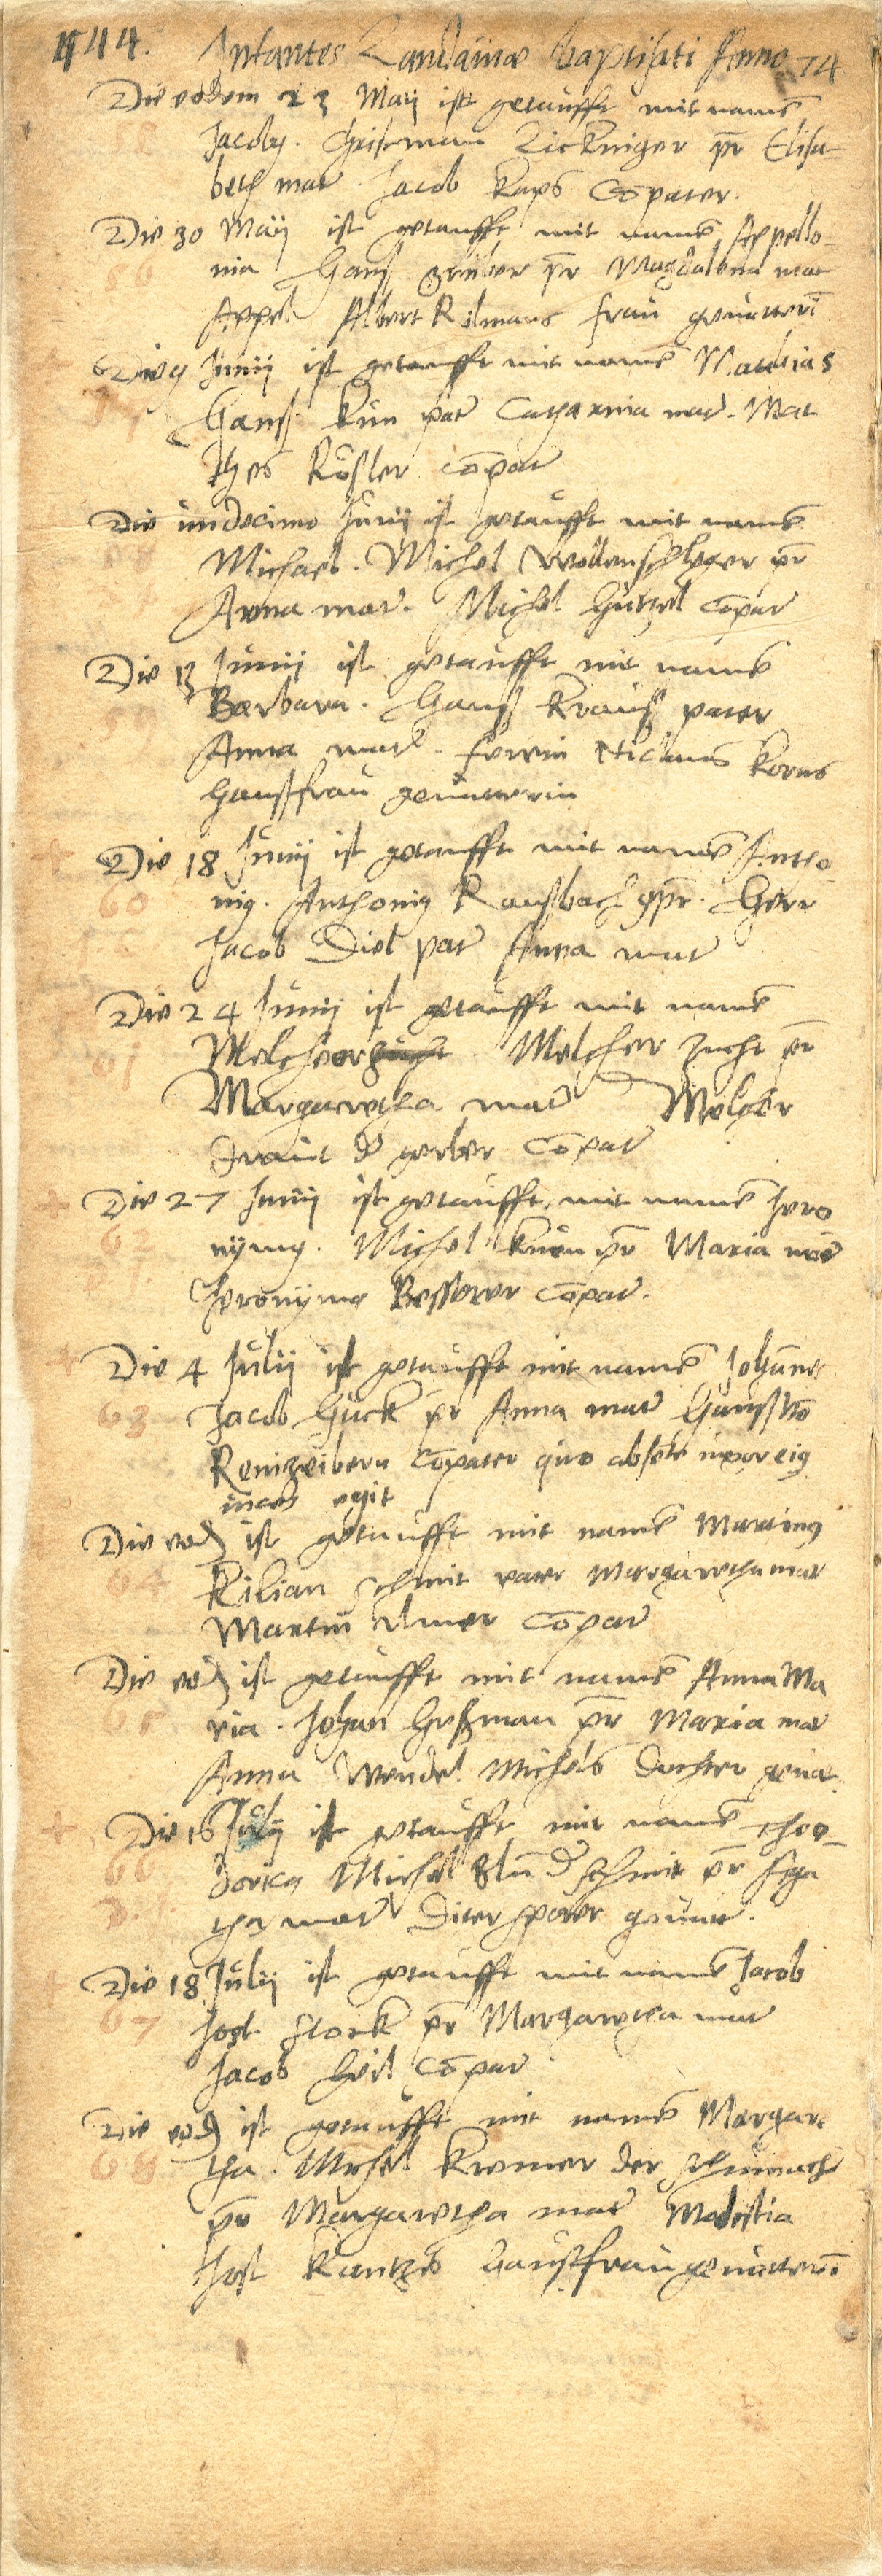 144. Infantes Landauiae baptisati Anno 74
Die eodem 23 Maij ist getaufft mit namē
Jacobg. Zickniger pr̄ Elisa-
beth mat Jacob Kaps Cōpater.
Die 30 Maij ist getaufft mit namē Appello-
nia Hanß Grüber pr̄ Magdalena mat
Appel Albert Rilmans frau geuatterī
Die 9 Junij ist getaufft mit namē Mathias
Hanß Kün pat Catharina mat. Mat
thes Rösler cōpat
Die undecimo Junij ist getaufft mit namē
Michael. Michel Wollenschleger pr̄
Anna mat. Michel Hützel cōpat
Die 13 Junij ist getaufft mit namē
Barbara. Hanß Krauß pater
Anna mat. Niclaus Korns
Haußfrau geuatterin
Die 18 Junij ist getaufft mit namē Antho
nig. Anthonig Rausbach gpr. Herr
Jacob Diel pat Anna mat
60
Die 24 Junij ist getaufft mit namē
Melcheor. Melcher Zucht pr̄
61
Margaretha mat Melcher
Traut d gerber Cōpat
Die 27 Junij ist getaufft mit namē Jero
62
nijmg. Michel Knön pr̄ Maria mat
Jeronijmg Besserer Cōpat.
Die 4 Julij ist getaufft mit namē Johānes
63
Jacob Hück pr̄ Anna mat Hanß Vō
Cōpater quo absēte uxor eig
uices egit
Die eod ist getaufft mit namē Marting
64
Kilian Schmit pater Margaretha mat
Martin Ulmer Cōpat
Die eod ist getaufft mit namē Anna Ma
65
ria. Johan Geßman pr̄ Maria mat
Anna Wendel Michels Dochter geuat.
Die 16 Julij ist getaufft mit namē Theo-
66
dorica Michel Blūd schmit pr̄ Aga
tha mat Diter geuatt.
Die 18 Julij ist getaufft mit namē Jacob
67
Jost Storck pr̄ Margaretha mat
Jacob Heil Cōpat
Die eod ist getaufft mit namē Margare
68
tha. Michel Kremer der schumach
pr̄ Margaretha mat Modestia
Jost Kantzes haußfrau geuatterī